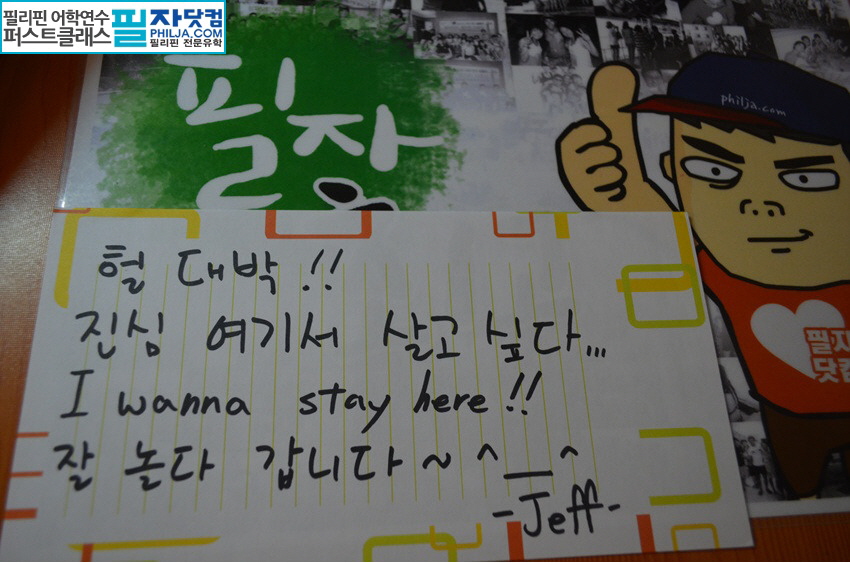 필리핀 어학연수
퍼스트클래스
필자닷컴
PHILJA.COM
필리핀 전문유학
필자
philja.com
필자
닷컴
헐 대박 !!
진심 여기서 살고 싶다...
I wanna stay here !!
잘 놀다 갑니다 ~ ^__^
-Jeff-